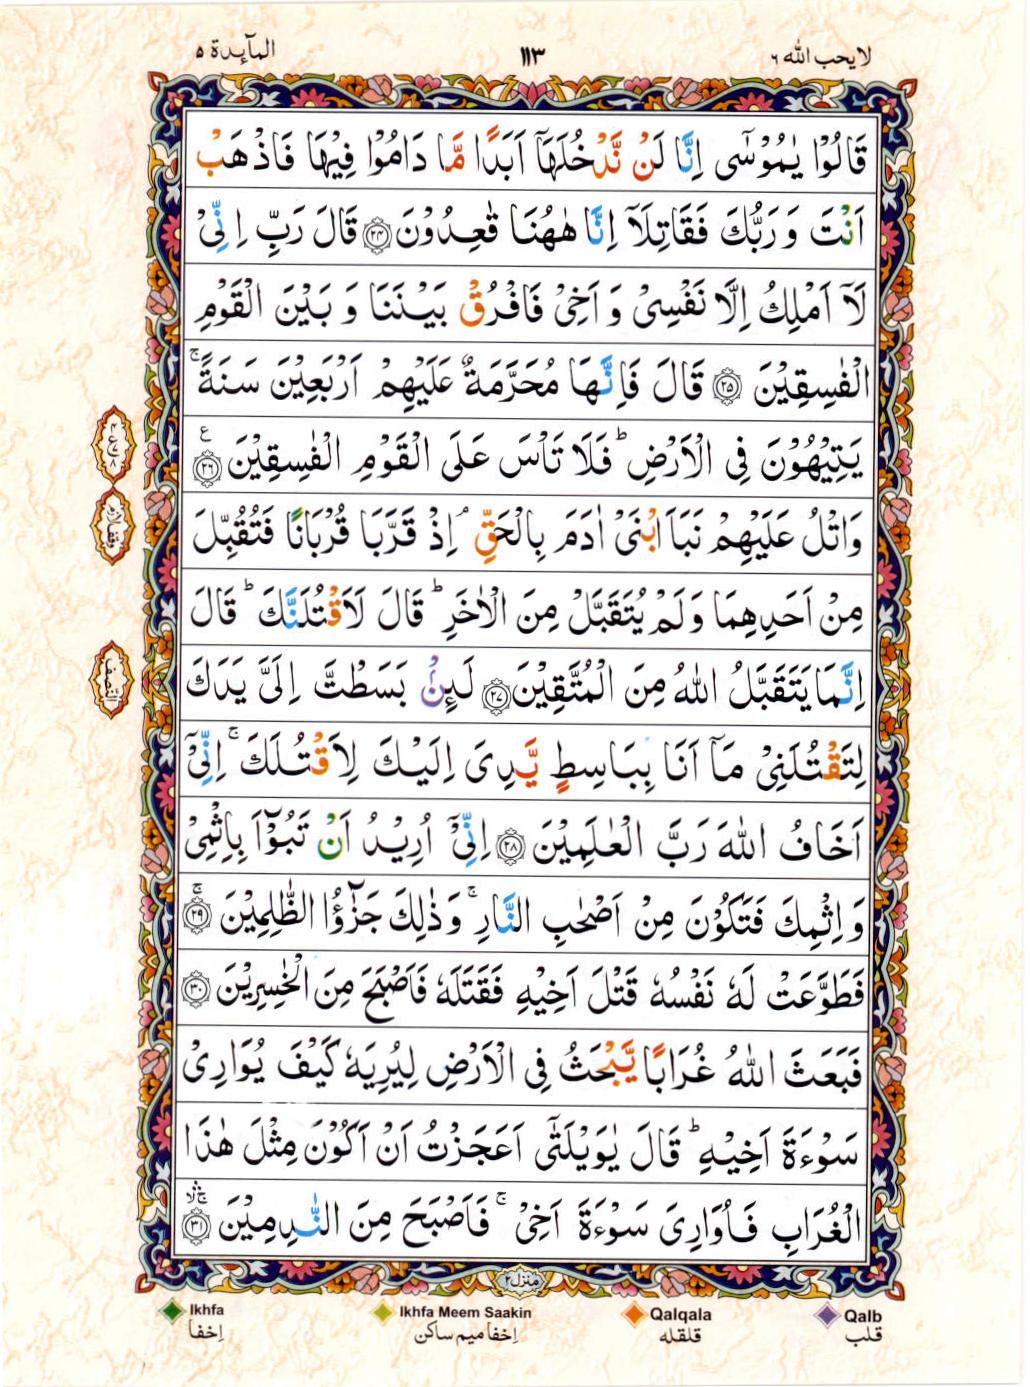 لا يحب الله ٦
١١٣
المآىِٕدة ٥
قَالُوْا يٰمُوْسٰٓى اِنَّا لَنْ نَّدْخُلَهَاۤ اَبَدًا مَّا دَامُوْا فِيْهَا فَاذْهَبْ
اَنْتَ وَ رَبُّكَ فَقَاتِلَاۤ اِنَّا هٰهُنَا قٰعِدُوْنَ ﴿٢٤﴾ قَالَ رَبِّ اِنِّيْ
لَاۤ اَمْلِكُ اِلَّا نَفْسِيْ وَ اَخِيْ فَافْرُقْ بَيْنَنَا وَ بَيْنَ الْقَوْمِ
الْفٰسِقِيْنَ ﴿٢٥﴾ قَالَ فَاِنَّهَا مُحَرَّمَةٌ عَلَيْهِمْ اَرْبَعِيْنَ سَنَةً ۚ
يَتِيْهُوْنَ فِي الْاَرْضِ ؕ فَلَا تَاْسَ عَلَى الْقَوْمِ الْفٰسِقِيْنَ ﴿٢٦﴾ ع
وَاتْلُ عَلَيْهِمْ نَبَاَ ابْنَيْ اٰدَمَ بِالْحَقِّ ۘ اِذْ قَرَّبَا قُرْبَانًا فَتُقُبِّلَ
مِنْ اَحَدِهِمَا وَلَمْ يُتَقَبَّلْ مِنَ الْاٰخَرِ ؕ قَالَ لَاَقْتُلَنَّكَ ؕ قَالَ
اِنَّمَا يَتَقَبَّلُ اللّٰهُ مِنَ الْمُتَّقِيْنَ ﴿٢٧﴾ لَىِٕنْۢ بَسَطْتَّ اِلَيَّ يَدَكَ
لِتَقْتُلَنِيْ مَاۤ اَنَا بِبَاسِطٍ يَّدِيَ اِلَيْكَ لِاَقْتُلَكَ ۚ اِنِّيْۤ
اَخَافُ اللّٰهَ رَبَّ الْعٰلَمِيْنَ ﴿٢٨﴾ اِنِّيْۤ اُرِيْدُ اَنْ تَبُوْٓاَ بِاِثْمِيْ
وَ اِثْمِكَ فَتَكُوْنَ مِنْ اَصْحٰبِ النَّارِ ۚ وَ ذٰلِكَ جَزٰٓؤُا الظّٰلِمِيْنَ ﴿٢٩﴾ ۚ
فَطَوَّعَتْ لَهٗ نَفْسُهٗ قَتْلَ اَخِيْهِ فَقَتَلَهٗ فَاَصْبَحَ مِنَ الْخٰسِرِيْنَ ﴿٣٠﴾
فَبَعَثَ اللّٰهُ غُرَابًا يَّبْحَثُ فِي الْاَرْضِ لِيُرِيَهٗ كَيْفَ يُوَارِيْ
سَوْءَةَ اَخِيْهِ ؕ قَالَ يٰوَيْلَتٰٓى اَعَجَزْتُ اَنْ اَكُوْنَ مِثْلَ هٰذَا
الْغُرَابِ فَاُوَارِيَ سَوْءَةَ اَخِيْ ۚ فَاَصْبَحَ مِنَ النّٰدِمِيْنَ ﴿٣١﴾ ۚۛۙ
النصف
منزل ٢
Ikhfa
اِخفا
Ikhfa Meem Saakin
اِخفا میم ساکن
Qalqala
قلقله
Qalb
قلب